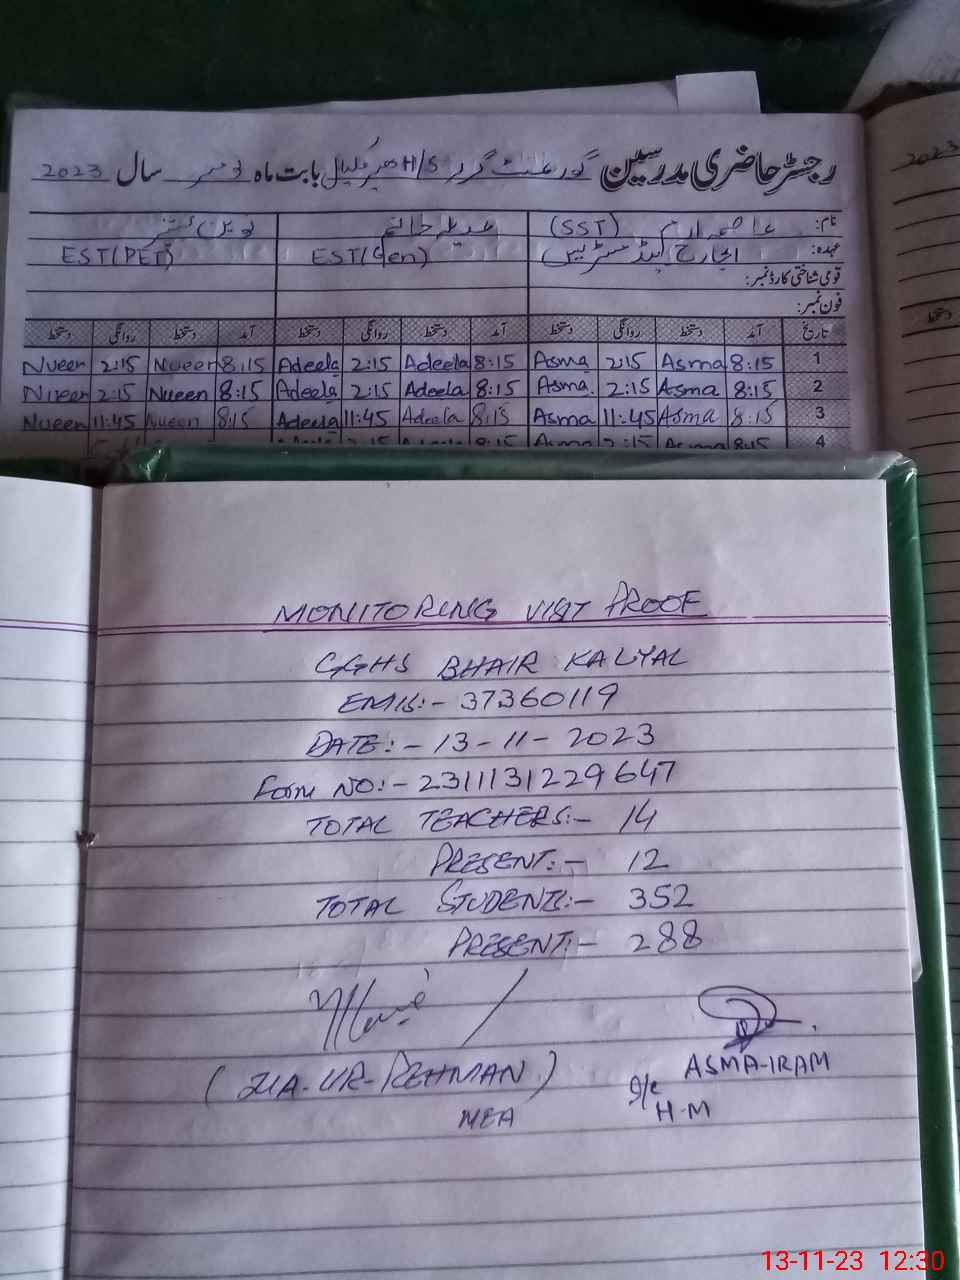 رجسٹر حاضری مدرسین گورنمنٹ گرلز H/S بھیر کلیال بابت ماہ نومبر سال 2023
نام: عاصمہ ارم (SST) عدیلہ خانم نوین کوثر
عہدہ: انچارج ہیڈ مسٹریس EST(Gen) EST(PET)
قومی شناختی کارڈ نمبر:
فون نمبر:
تاریخ آمد دستخط روانگی دستخط آمد دستخط روانگی دستخط آمد دستخط روانگی دستخط
1 8:15 Asma 2:15 Asma 8:15 Adeela 2:15 Adeela 8:15 Nveen 2:15 Nveen
2 8:15 Asma 2:15 Asma 8:15 Adeela 2:15 Adeela 8:15 Nveen 2:15 Nveen
3 8:15 Asma 11:45 Asma 8:15 Adeela 11:45 Adeela 8:15 Nveen 11:45 Nveen
4 8:15 Asma 2:15 Asma 8:15
2023
دستخط
MONITORING VISIT PROOF
GGHS BHAIR KALYAL
EMIS:- 37360119
DATE:- 13-11-2023
Form NO:- 2311131229647
TOTAL TEACHERS:- 14
PRESENT:- 12
TOTAL STUDENTS:- 352
PRESENT:- 288
(ZIA-UR-REHMAN)
MEA
ASMA-IRAM
I/c
H-M
13-11-23 12:30